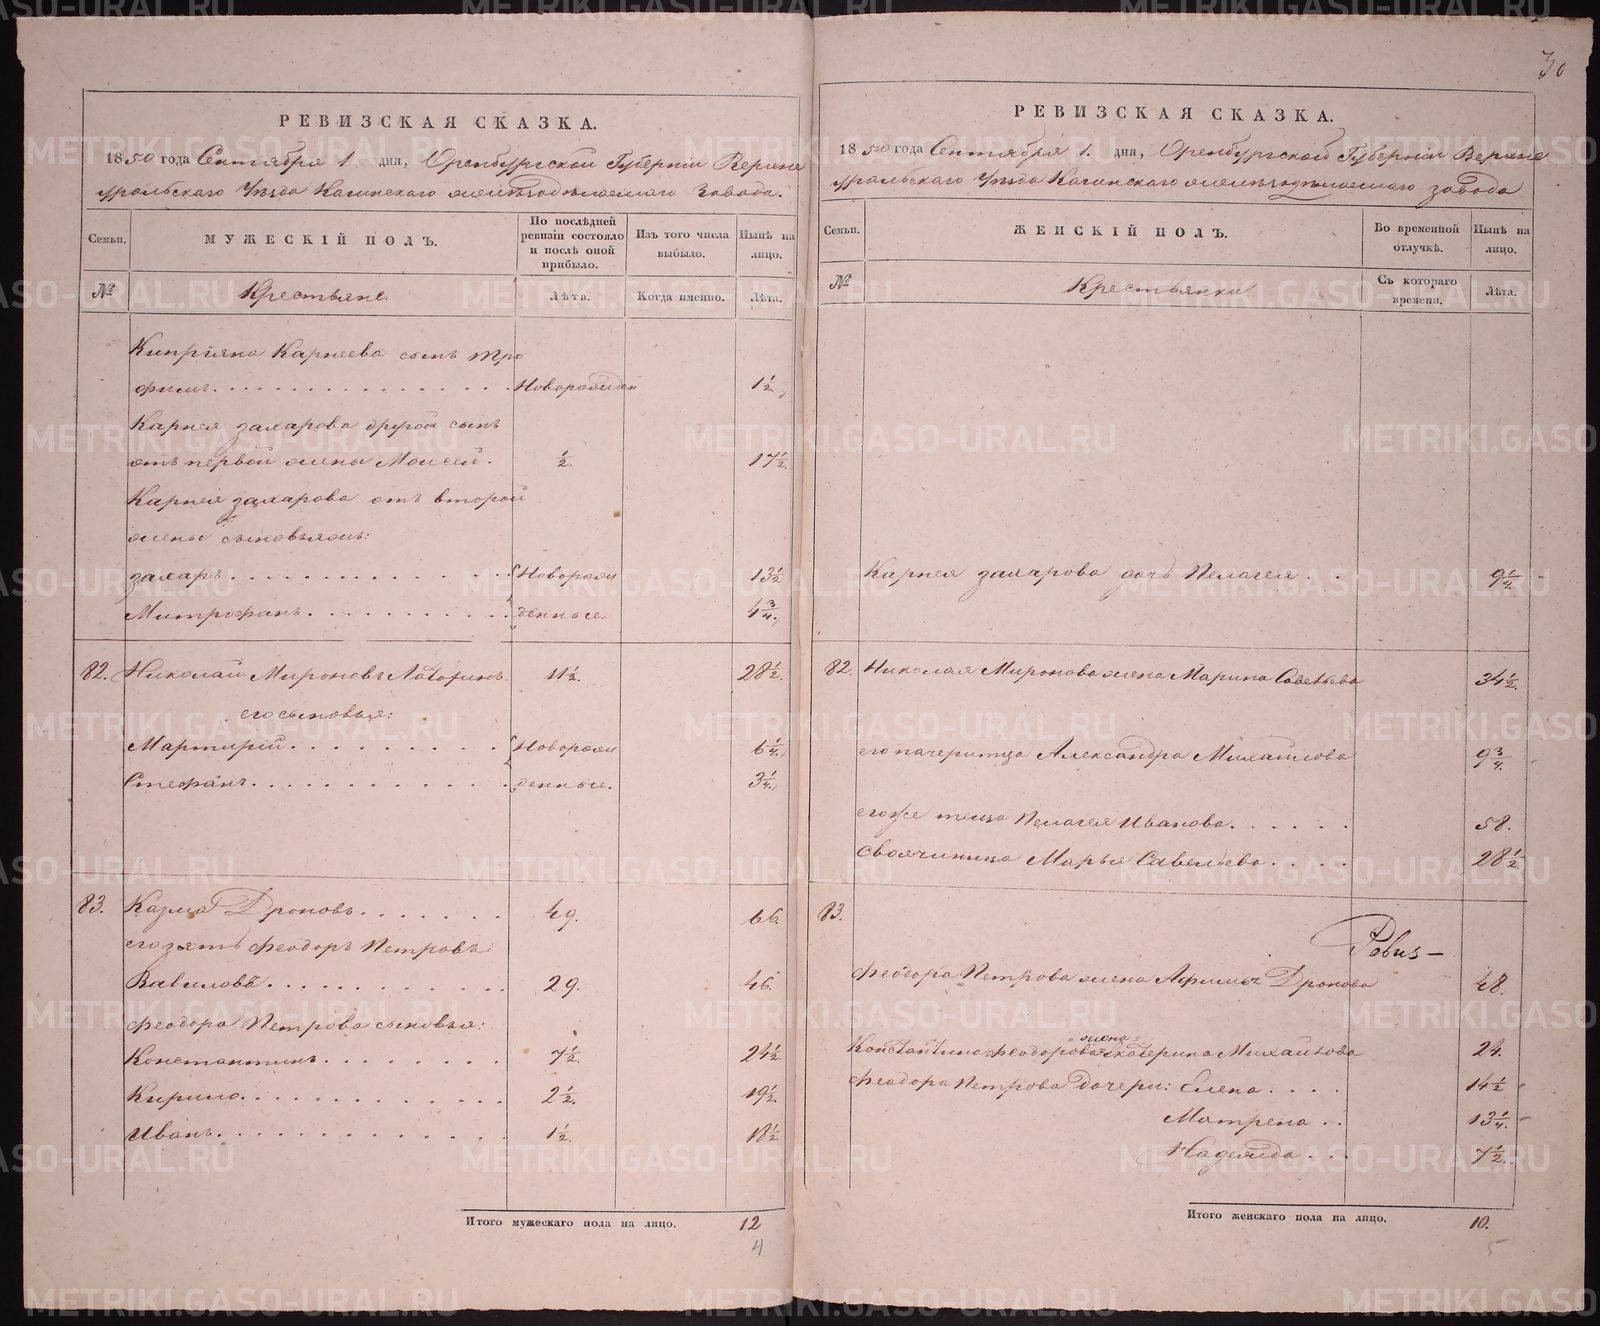 30
РЕВИЗСКАЯ СКАЗКА.
1850 года Сентября 1 дня, Оренбургской Губернiи Верхне
уральскаго Уѣзда Кагинскаго желѣзодѣлаемаго Завода.
Семьи.
МУЖЕСКIЙ ПОЛЪ.
По послѣдней
ревизiи состояло
и послѣ оной
прибыло.
Изъ того числа
выбыло.
Нынѣ на
лицо.
№
Крестьяне.
Лѣта.
Когда именно.
Лѣта.
Кипрiяна Карнеева сынъ Тро
фимъ. Новорожден 1½
Карнея Захарова другой сынъ
отъ первой жены Моисей. ½. 17½.
Карнея Захарова отъ второй
жены сыновьямъ:
Захаръ. Новорож 13½
Митрофанъ. денные. 4¾.
82. Николай Мироновъ 11½. 28½.
его сыновья:
Мартирiй. Новорож 6¼.
Стефанъ. денные. 3¼.
83. Казма Дроновъ. 49. 66.
его зять Феодоръ Петровъ
Вавиловъ. 29. 46.
Феодора Петрова сыновья:
Константинъ. 7½. 24½.
Кирило. 2½. 19½.
Иванъ. 1½. 18½.
Итого мужескаго пола на лицо. 12
4
РЕВИЗСКАЯ СКАЗКА.
1850 года Сентября 1. дня, Оренбургской Губернiи Верхне
уральскаго Уѣзда Кагинскаго желѣзодѣлаемаго завода
Семьи.
ЖЕНСКIЙ ПОЛЪ.
Во временной
отлучкѣ.
Нынѣ на
лицо.
№
Крестьянки
Съ котораго
времени.
Лѣта.
Карнея Захарова дочь Пелагея. 9¼.
82. Николая Миронова жена Марина Савельева 34½.
его падчерица Александра Михайлова 9¾.
егоже теща Пелагея Иванова. 58.
своячиница Марья Савельева. 28½
83.
Феодора Петрова жена Афимья Дронова 48.
жена
Константина Феодорова Екатерина Михайлова 24.
Феодора Петрова Дочери: Елена. 14½
Матрена. 13¼.
Надежда. 7½.
Итого женскаго пола на лицо. 10.
5
METRIKI.GASO-URAL.RU